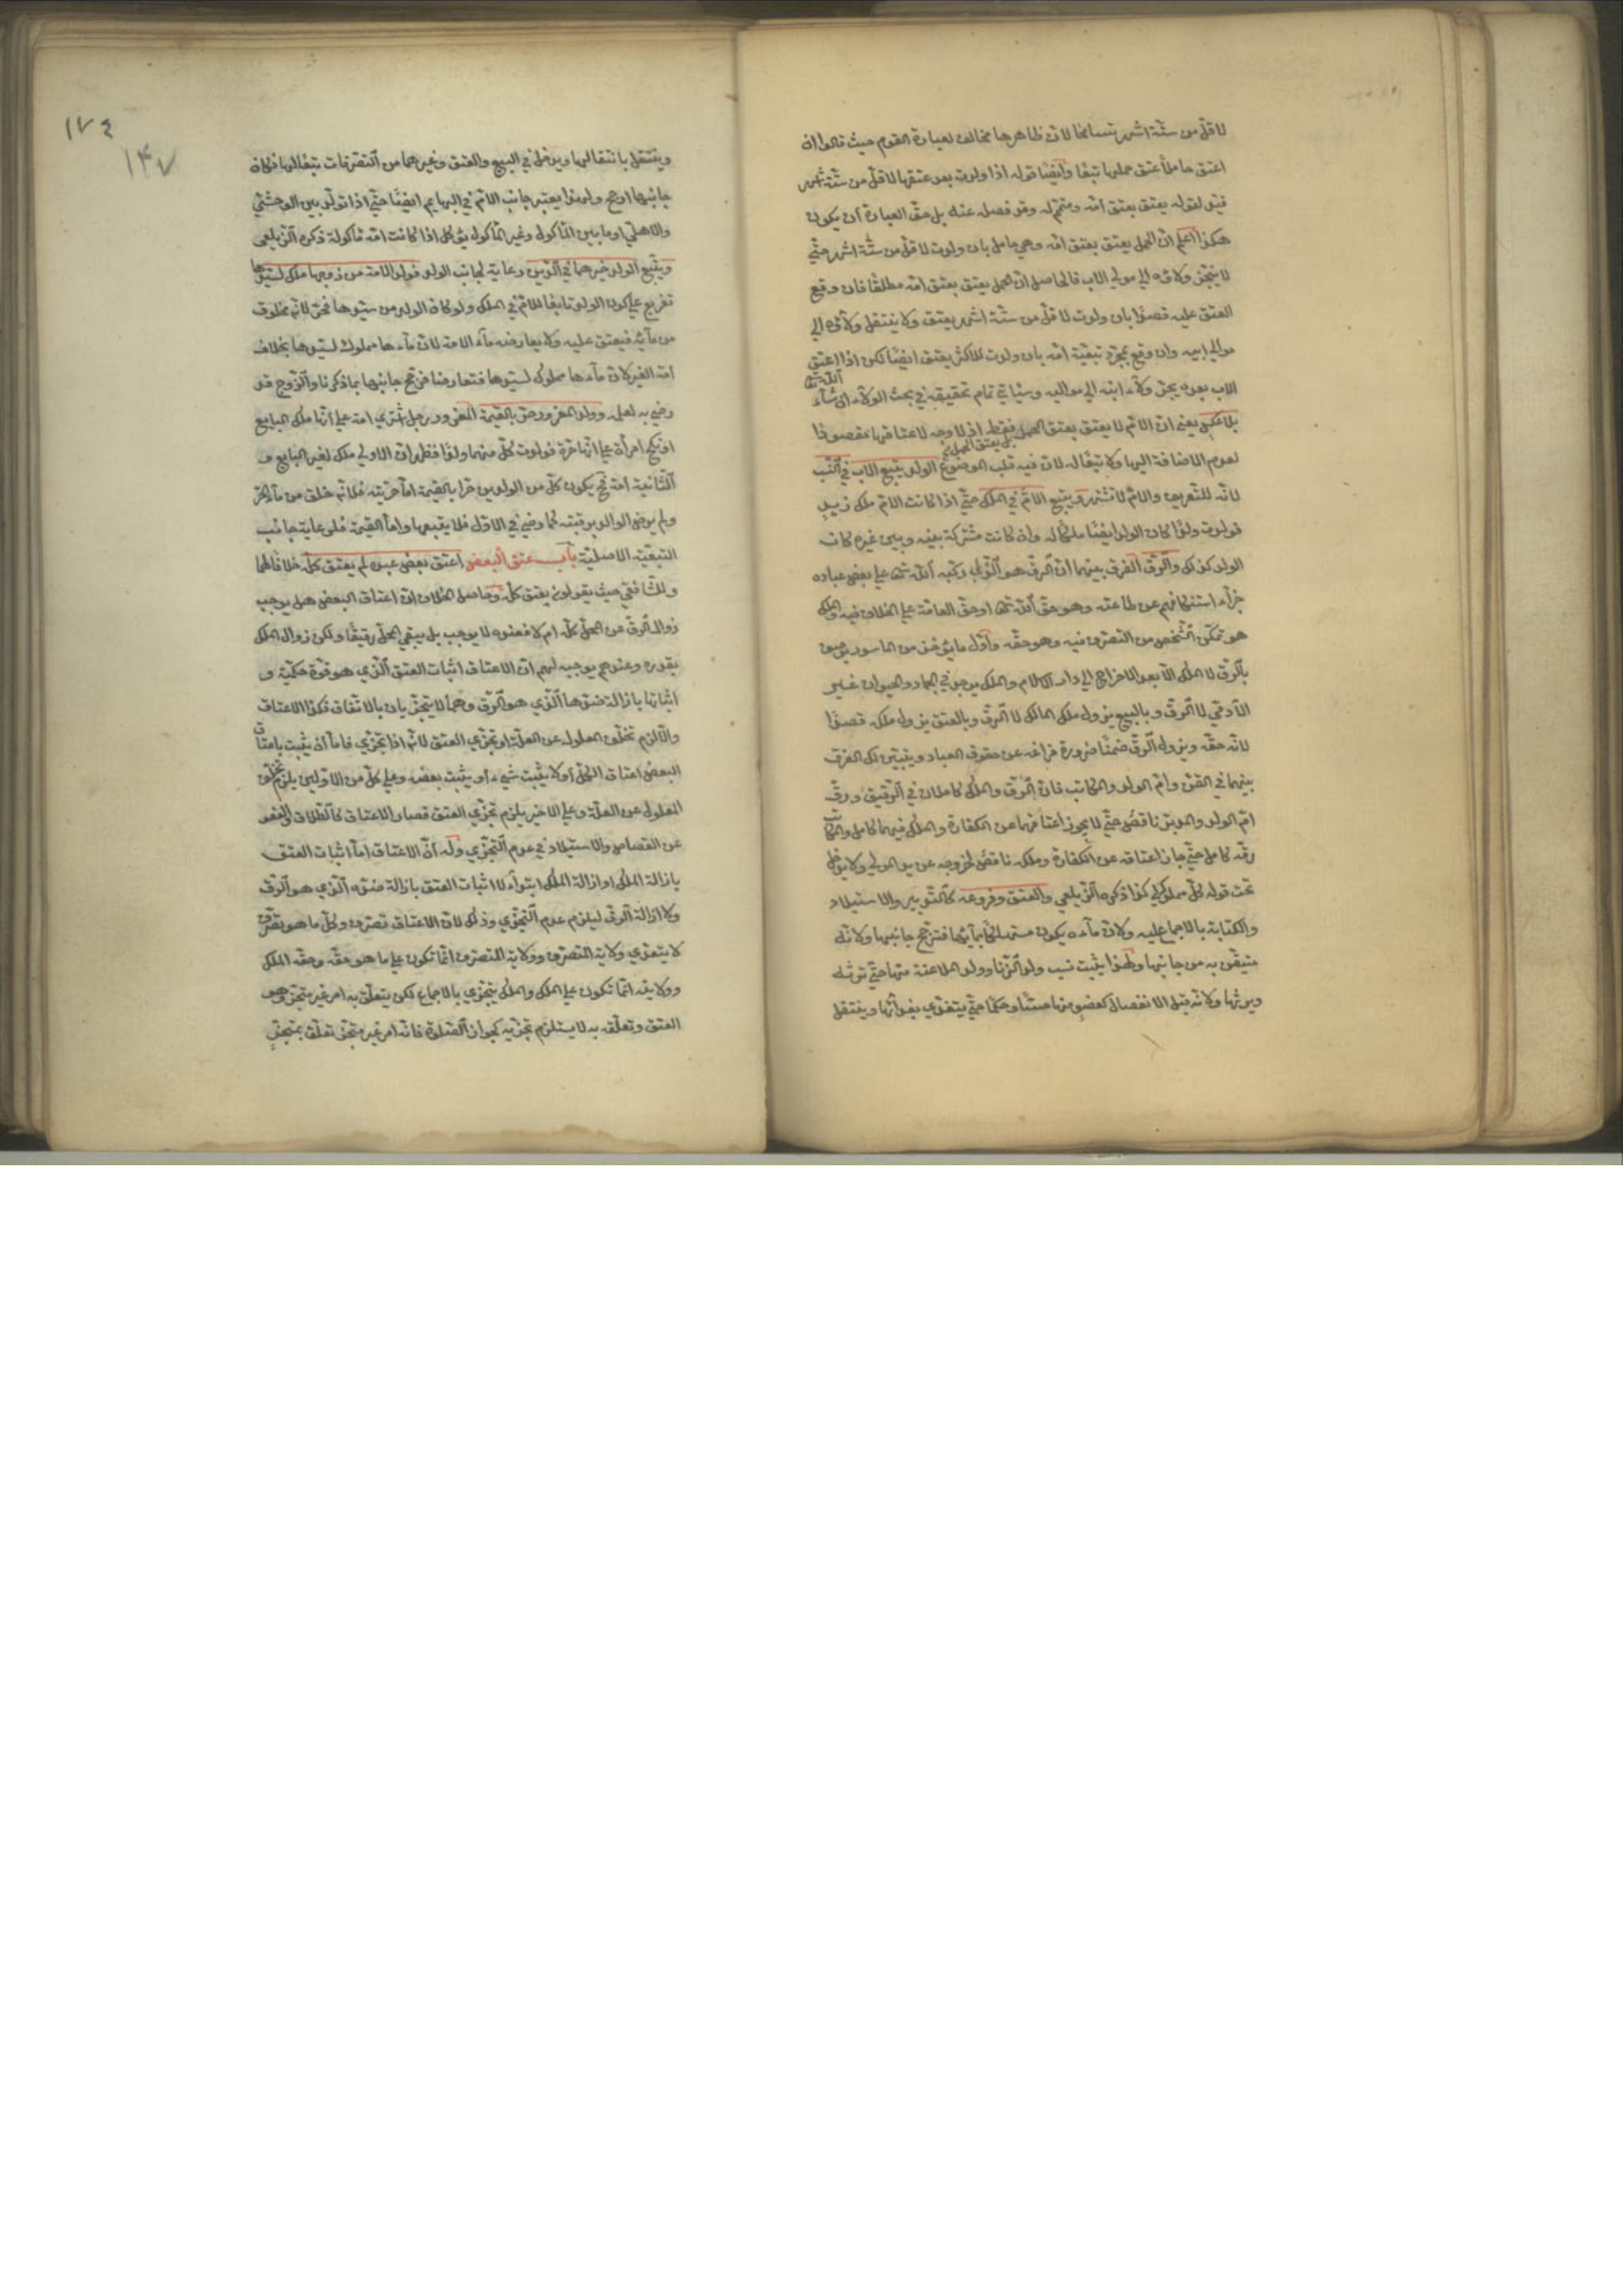 لاقلّ من ستّة اشهر تسامحا لانّ ظاهرها مخالف لعبارة القوم حيث قالوا ان
اعتق حاملا عتق حملها تبعًا وايضًا قوله اذا ولدت بعد عتقها لاقلّ من ستّة اشهر
قيد لقوله يعتق بعتق امّه ومتمّم له وقد فصله عنه بل حقّ العبارة ان يكون
هكذا اعلم انّ الحمل يعتق بعتق امّه وهي حامل بان ولدت لاقلّ من ستّة اشهر حتّي
لا ينجرّ ولاؤه الي موالي الاب فالحاصل انّ الحمل يعتق بعتق امّه مطلقًا فان وقع
العتق عليه قصدًا بان ولدت لاقلّ من ستّة اشهر يعتق ولا ينتقل ولاؤه الي
موالي ابيه وان وقع بمجرّد تبعيّة امّه بان ولدت للاكثر يعتق ايضًا لكن اذا اعتق
الاب بعده يجرّ ولاء ابنه الي مواليه وسيأتي تمام تحقيقه في بحث الولاء ان شاء الله تعالي
بلا عكس يعني انّ الامّ لا يعتق بعتق الحمل بل يعتق الحمل فقط اذ لا وجه لاعتاقها مقصودًا
لعدم الاضافة اليها ولا تبعًا له لانّ فيه قلب الموضوع الولد يتبع الاب في النّسب
لانّه للتّعريف والامّ لا تشتهر ويتبع الامّ في الملك حتّي اذا كانت الامّ ملك زيدٍ
فولدت ولدًا كان الولد ايضًا ملكًا له وان كانت مشتركة بينه وبين غيره كان
الولد كذلك والرّقّ الفرق بينهما انّ الرّقّ هو الذّلّ الذي ركبه الله تعالي علي بعض عباده
جزاء استنكافهم عن طاعته وهو حقّ الله تعالي او حقّ العامّة علي الخلاف فيه والملك
هو تمكّن الشّخص من التصرّف فيه وهو حقّه واوّل ما يؤخذ من الماسور يوصف
بالرّقّ لا الملك الّا بعد الاخراج الي دار الاسلام والملك يوجد في الجماد والحيوان غير
الآدمّي لا الرّقّ وبالبيع يزول ملك المالك لا الرّقّ وبالعتق يزول ملكه قصدًا
لانّه حقّه ويزول الرّقّ ضمنًا ضرورة فراغه عن حقوق العباد ويتبيّن لك الفرق
بينهما في القنّ وامّ الولد والمكاتب فانّ الرّقّ والملك كاملان في الرّقيق ورقّ
امّ الولد والمدبّر ناقص حتّي لا يجوز اعتاقهما عن الكفارة والملك فيهما كامل والمكاتب
رقّه كامل حتّي جاز اعتاقه عن الكفارة وملكه ناقص لخروجه عن يد المولي ولا يدخل
تحت قوله كلّ مملوك لي كذا ذكره الزيلعي والعتق وفروعه كالتّدبير والاستيلاد
والكتابة بالاجماع عليه ولانّ ماءه يكون مستهلكًا بمائها فترجّح جانبها ولانّه
متيقّن به من جانبها ولهذا يثبت نسب ولد الزّنا وولد الملاعنة منها حتّي ترثه
ويرثها ولانّه قبل الانفصال كعضوٍ منها حسًّا وحكمًا حتّي يتغذّي بغذائها وينتقل
١٧٤
١٤٧
وينتقل بانتقالها ويدخل في البيع والعتق وغيرهما من التصرّفات تبعًا لها فكان
جانبها ارجح ولهذا يعتبر جانب الامّ في البهايم ايضًا حتّي اذا تولّد بين الوحشيّ
والاهليّ او ما بين المأكول وغير المأكول يؤكل اذا كانت امّه مأكولة ذكره الزّيلعي
ويتبع الولد خيرهما في الدّين رعاية لجانب الولد فولد الامة من زوجها ملك لسيّدها
تفريع علي كون الولد تابعًا للامّ في الملك ولو كان الولد من سيّدها فحرّ لانّه مخلوق
من مائه فيعتق عليه ولا يعارضه ماء الامة لانّ ماءها مملوك لسيّدها بخلاف
امة الغير لانّ ماءها مملوك لسيّدها فتعارضا فرجّح جانبها بما ذكرنا والزّوج قد
رضي به لعلمه وولد المغرور حرّ بالقيمة المغرور رجل اشتري امة علي انّها ملك البايع
او نكح امرأة علي انّها حرّة فولدت كلّ منهما ولدًا فظهر انّ الاولي ملك لغير البايع و
الثّانية امة فح يكون كلّ من الولدين حرّا بالقيمة امّا حرّيته فلانّه خلق من ماء الحرّ
ولم يرض الوالد برقيّته كما رضي في الاوّل فلا يتبعها وامّا القيمة فلرعاية جانب
التبعيّة الاصليّة باب عتق البعض اعتق بعض عبده لم يعتق كلّه خلافًا لهما
وللشّافعي حيث يقولون يعتق كلّه وحاصل الخلاف انّ اعتاق البعض هل يوجب
زوال الرّقّ عن المحلّ كلّه ام لا فعنده لا يوجب بل يبقي المحلّ رقيقًا ولكن زوال الملك
بقدره وعندهم يوجبه لهم انّ الاعتاق اثبات العتق الّذي هو قوّة حكميّة و
اثباتها بازالة ضدّها الّذي هو الرّقّ وهما لا يتجزّيان بالاتّفاق فكذا الاعتاق
والّا لزم تخلّف المعلول عن العلّة او تجزّي العتق لانّه اذا تجزّي فامّا ان يثبت باعتاق
البعض اعتاق الكلّ او لا يثبت شيء او يثبت بعضه وعلي كلّ من الاوّلين يلزم تخلّف
المعلول عن العلّة وعلي الاخير يلزم تجزّي العتق فصار الاعتاق كالطّلاق والعفو
عن القصاص والاستيلاد في عدم التّجزّي وله انّ الاعتاق امّا اثبات العتق
بازالة الملك او ازالة الملك ابتداءً لا اثبات العتق بازالة ضدّه الّذي هو الرّقّ
ولا ازالة الرّقّ ليلزم عدم التّجزّي وذلك لانّ الاعتاق تصرّف وكلّ ما هو تصرّف
لا يتعدّي ولاية التصرّف وولاية المتصرّف انّما تكون علي ما هو حقّه وحقّه الملك
وولايته انّما تكون علي الملك والملك يتجزّي بالاجماع لكن يتعلّق به امر غير متجزٍّ وهو
العتق وتعلّقه به لا يستلزم تجزّيه كجواز الصّلوة فانّه امر غير متجزٍّ تعلّق بمتجزٍّ